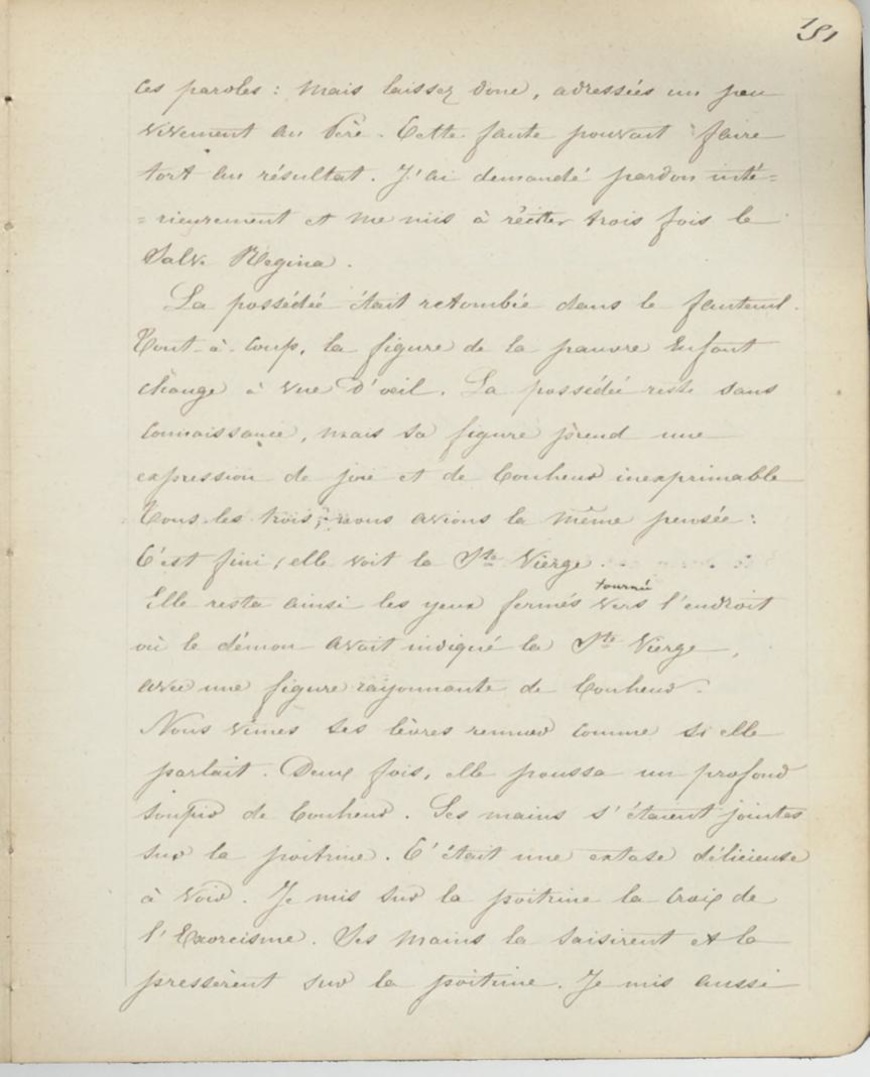 151
ces paroles : mais laissez donc, adressées un peu
vivement au Père. Cette faute pouvait faire
tort au résultat. J'ai demandé pardon inté-=
=rieurement et me mis à réciter trois fois le
Salv. Regina.
La possédée était retombée dans le fauteuil.
Tout-à-coup, la figure de la pauvre Enfant
change à vue d'oeil. La possédée reste sans
connaissance, mais sa figure prend une
expression de joie et de bonheur inexprimable
Tous les trois, nous avions la même pensée :
C'est fini, elle voit la Ste Vierge.
tournée
Elle resta ainsi les yeux fermés vers l'endroit
où le démon avait indiqué la Ste Vierge,
avec une figure rayonnante de bonheur.
Nous vîmes ses lèvres remuer comme si elle
parlait. Deux fois, elle poussa un profond
soupir de bonheur. Ses mains s'étaient jointes
sur la poitrine. C'était une extase délicieuse
à voir. Je mis sur la poitrine la Croix de
l'Exorcisme. Ses mains la saisirent et la
pressèrent sur la poitrine. Je mis aussi